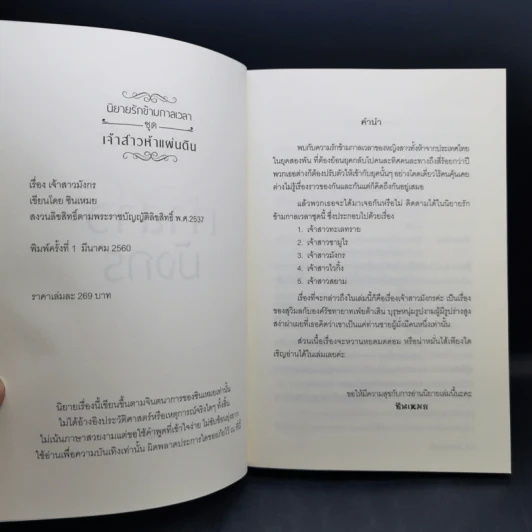 นิยายรักข้ามกาลเวลา
ชุด
เจ้าสาวห้าแผ่นดิน
เรื่อง เจ้าสาวมังกร
เขียนโดย ซินเหมย
สงวนลิขสิทธิ์ตามพระราชบัญญัติลิขสิทธิ์ พ.ศ.2537
พิมพ์ครั้งที่ 1 มีนาคม 2560
ราคาเล่มละ 269 บาท
นิยายเรื่องนี้เขียนขึ้นตามจินตนาการของซินเหมยเท่านั้น
ไม่ได้อ้างอิงประวัติศาสตร์หรือเหตุการณ์จริงใดๆ ทั้งสิ้น
ไม่เน้นภาษาสวยงามแต่ขอใช้คำพูดที่เข้าใจง่าย ไม่ซับซ้อนยุ่งยาก
ใช้อ่านเพื่อความบันเทิงเท่านั้น ผิดพลาดประการใดขออภัยไว้ ณ ที่นี้
คำนำ
พบกับความรักข้ามกาลเวลาของหญิงสาวทั้งห้าจากประเทศไทย
ในยุคสองพัน ที่ต้องย้อนยุคกลับไปคนละทิศคนละทางถึงสี่ร้อยกว่าปี
พวกเธอต่างก็ต้องปรับตัวให้เข้ากับยุคนั้นๆ อย่างโดดเดี่ยวไร้คนคุ้นเคย
ต่างไม่รู้เรื่องราวของกันและกันแต่ก็คิดถึงกันอยู่เสมอ
แล้วพวกเธอจะได้มาเจอกันหรือไม่ ติดตามได้ในนิยายรัก
ข้ามกาลเวลาชุดนี้ ซึ่งประกอบไปด้วยเรื่อง
1. เจ้าสาวทะเลทราย
2. เจ้าสาวซามูไร
3. เจ้าสาวมังกร
4. เจ้าสาวไวกิ้ง
5. เจ้าสาวสยาม
เรื่องที่จะกล่าวถึงในเล่มนี้ก็คือเรื่องเจ้าสาวมังกรค่ะ เป็นเรื่อง
ของสุวิมลกับองค์รัชทายาทเฟยต้าเสิน บุรุษหนุ่มรูปงามผู้มีรูปร่างสูง
สง่าผ่าเผยที่เธอคิดว่าเขาเป็นแค่ท่านชายผู้มั่งมีคนหนึ่งเท่านั้น
ส่วนเนื้อเรื่องจะหวานหยดมดตอม หรือน่าหมั่นไส้เพียงใด
เชิญอ่านได้ในเล่มเลยค่ะ
ขอให้มีความสุขกับการอ่านนิยายเล่มนี้นะคะ
ซินเหมย